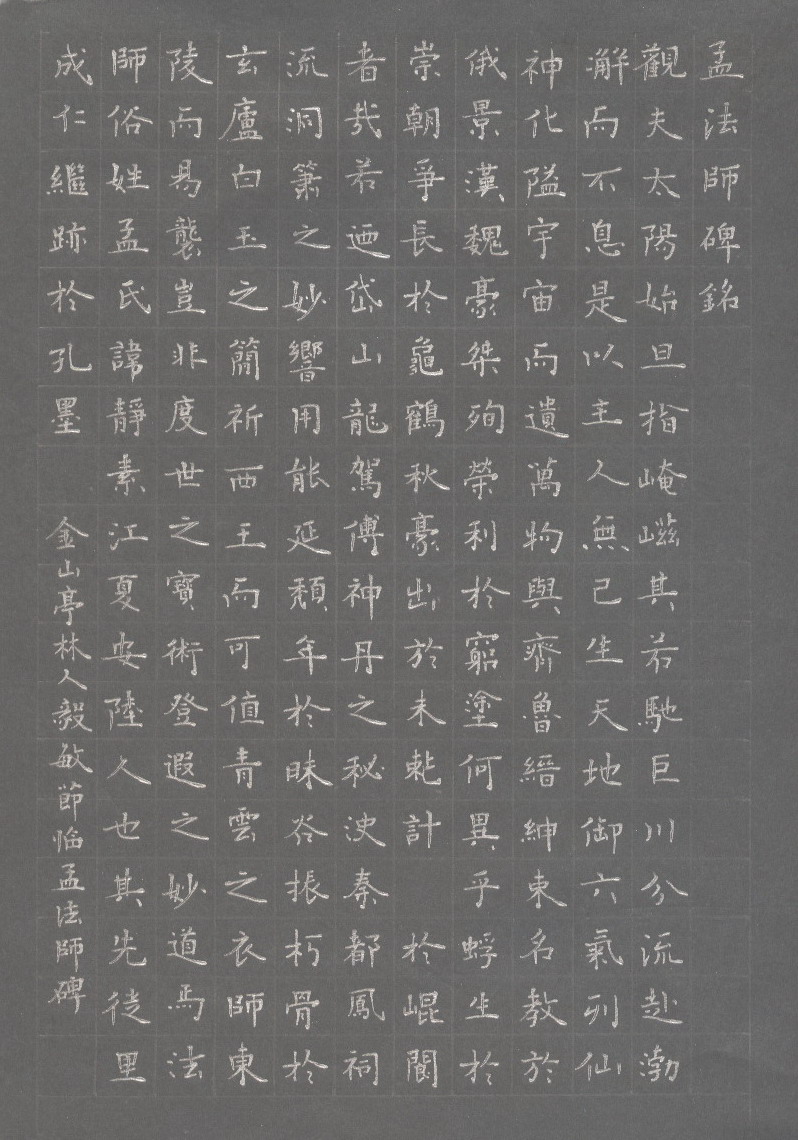 孟法師碑銘
觀夫太陽始旦指崦嵫其若馳巨川分流赴渤
澥而不息是以主人無己生天地御六氣列仙
神化隘宇宙而遺萬物與齊魯縉紳東名教於
俄景漢魏豪桀殉榮利於窮塗何異乎蜉生於
崇朝爭長於龜鶴秋豪出於未乾計於崐閬
者哉若迺岱山龍駕傅神丹之秘決秦都鳳祠
流洞簫之妙響用能延頹年於昧谷振朽骨於
玄廬白玉之簡祈西王而可值青雲之衣師東
陵而易襲豈非度世之寶術登遐之妙道焉法
師俗姓孟氏諱靜素江夏安陸人也其先徒里
成仁繼跡於孔墨 金山亭林人毅敏節臨孟法師碑